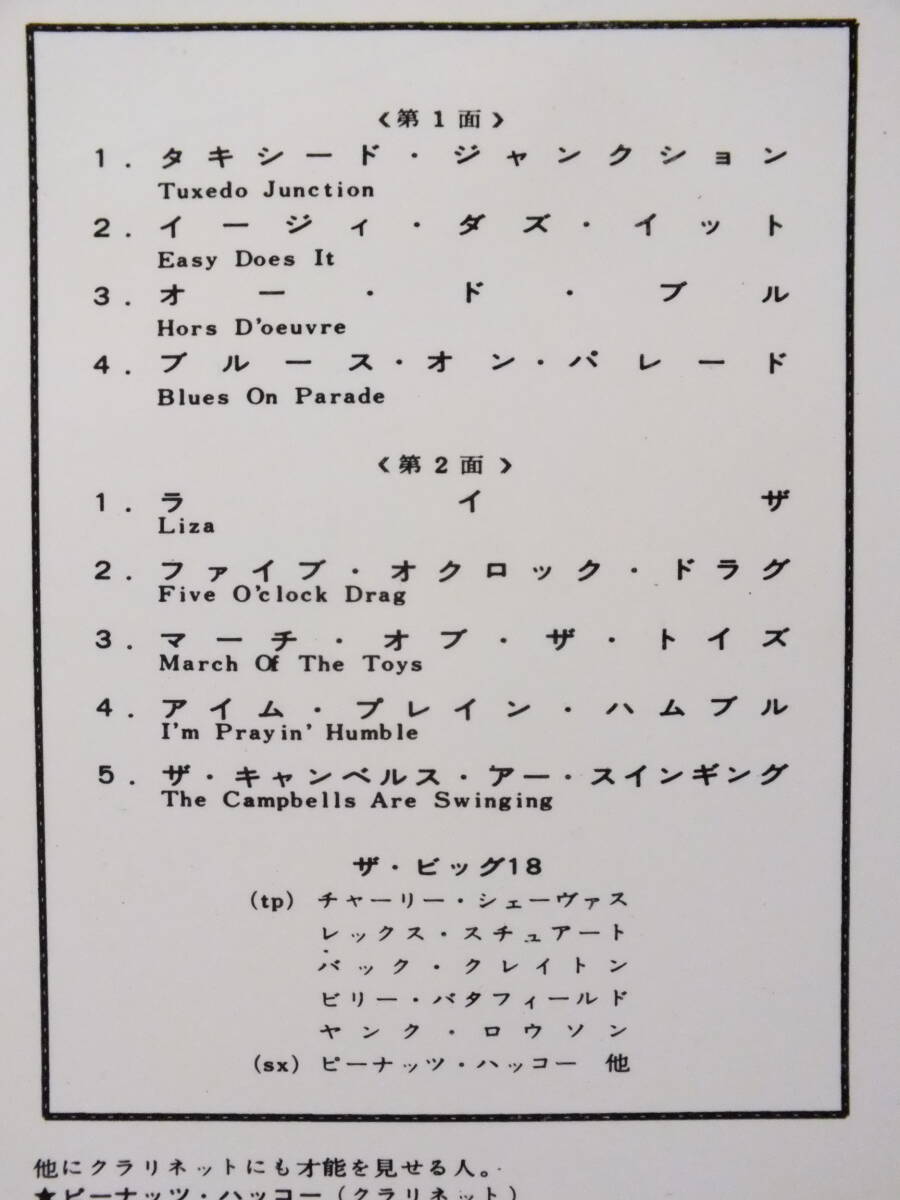 〈第1面〉
1. タキシード・ジャンクション
Tuxedo Junction
2. イージィ・ダズ・イット
Easy Does It
3. オー・ド・ブル
Hors D'oeuvre
4. ブルース・オン・パレード
Blues On Parade
〈第2面〉
1. ライザ
Liza
2. ファイブ・オクロック・ドラグ
Five O'clock Drag
3. マーチ・オブ・ザ・トイズ
March Of The Toys
4. アイム・プレイン・ハムブル
I'm Prayin' Humble
5. ザ・キャンベルス・アー・スインギング
The Campbells Are Swinging
ザ・ビッグ18
(tp) チャーリー・シェーヴァス
レックス・スチュアート
バック・クレイトン
ビリー・バタフィールド
ヤンク・ロウソン
(sx) ピーナッツ・ハッコー 他
他にクラリネットにも才能を見せる人。
★ピーナッツ・ハッコー(クラリネット)